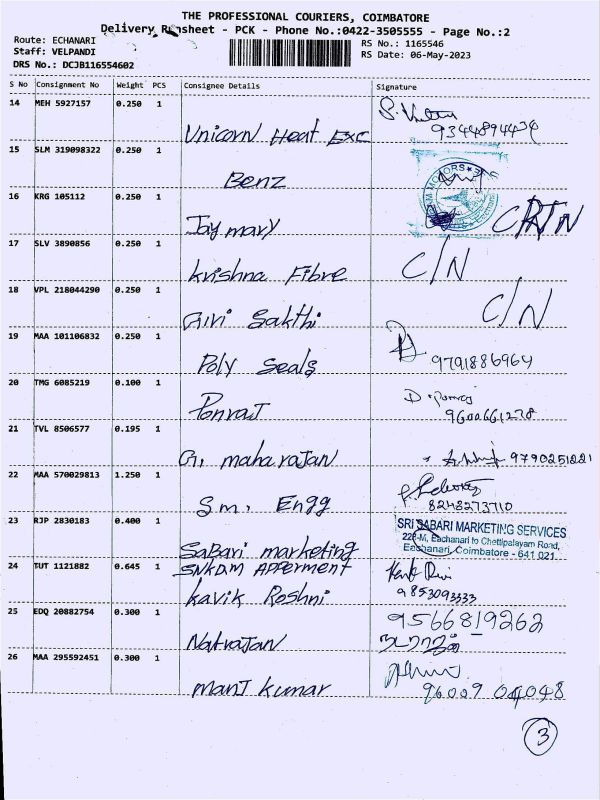 THE PROFESSIONAL COURIERS, COIMBATORE
Delivery Runsheet - PCK - Phone No.:0422-3505555 - Page No.:2
Route: ECHANARI
Staff: VELPANDI
DRS No.: DCJB116554602
RS No.: 1165546
RS Date: 06-May-2023
S No Consignment No Weight PCS Consignee Details Signature
14 MEH 5927157 0.250 1
Unicorn Heat Exc
9344894434
15 SLM 319098322 0.250 1
Benz
MOTORS
16 KRG 105112 0.250 1
Jaymary
17 SLV 3890856 0.250 1
Krishna Fibre C/N
18 VPL 218044290 0.250 1
Giri Sakthi C/N
19 MAA 101106832 0.250 1
Poly Seals 9791886964
20 TMG 6085219 0.100 1
Ponraj
9600661278
21 TVL 8506577 0.195 1
G. maharajan 9790251221
22 MAA 570029813 1.250 1
S.m. Engg 8248273710
23 RJP 2830183 0.400 1
SRI SABARI MARKETING SERVICES
22-M, Eachanari to Chettipalayam Road,
Eachanari, Coimbatore - 641 021
Sabari marketing
24 TUT 1121882 0.645 1
SNKDM APPERMENT
Kavik Roshni 9853093333
25 EDQ 20882754 0.300 1
9566819262
Natrajan நடராஜன்
26 MAA 295592451 0.300 1
Manj Kumar 96009 04048
3